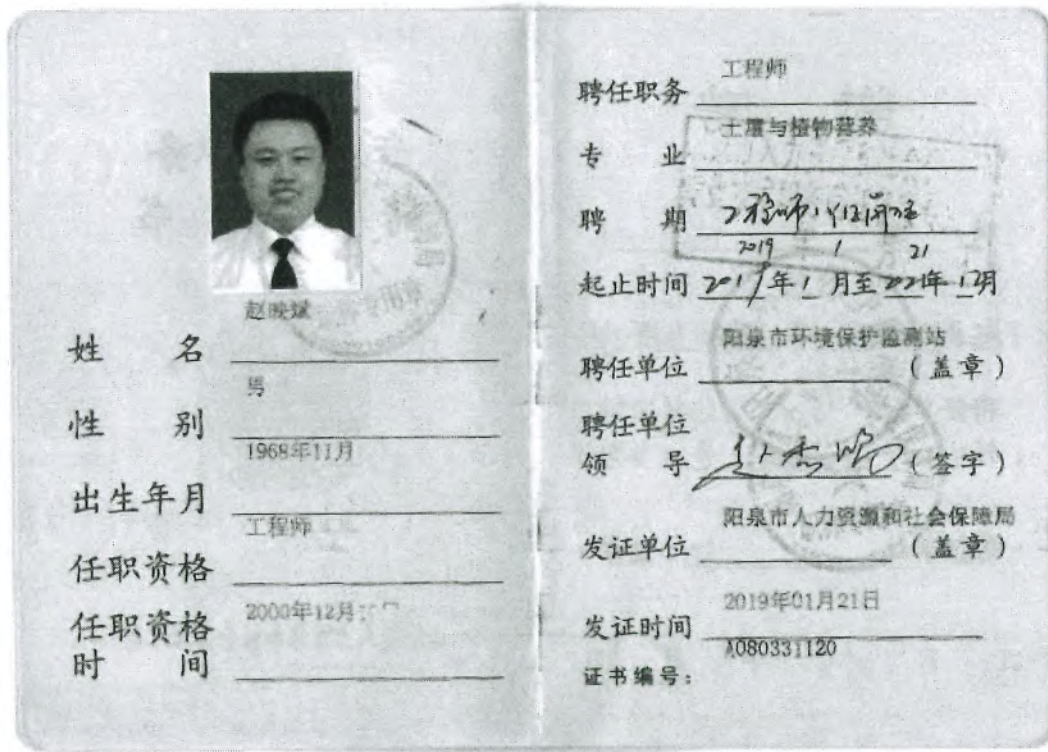 赵映斌
姓 名
男
性 别
1968年11月
出生年月
工程师
任职资格
2000年12月
任职资格
时 间
工程师
聘任职务
土壤与植物营养
专 业
聘 期 工程师
2019 1 21
起止时间 2019年1月至2021年12月
阳泉市环境保护监测站
聘任单位 (盖章)
聘任单位
领 导 (签字)
阳泉市人力资源和社会保障局
发证单位 (盖章)
2019年01月21日
发证时间
A080331120
证书编号: